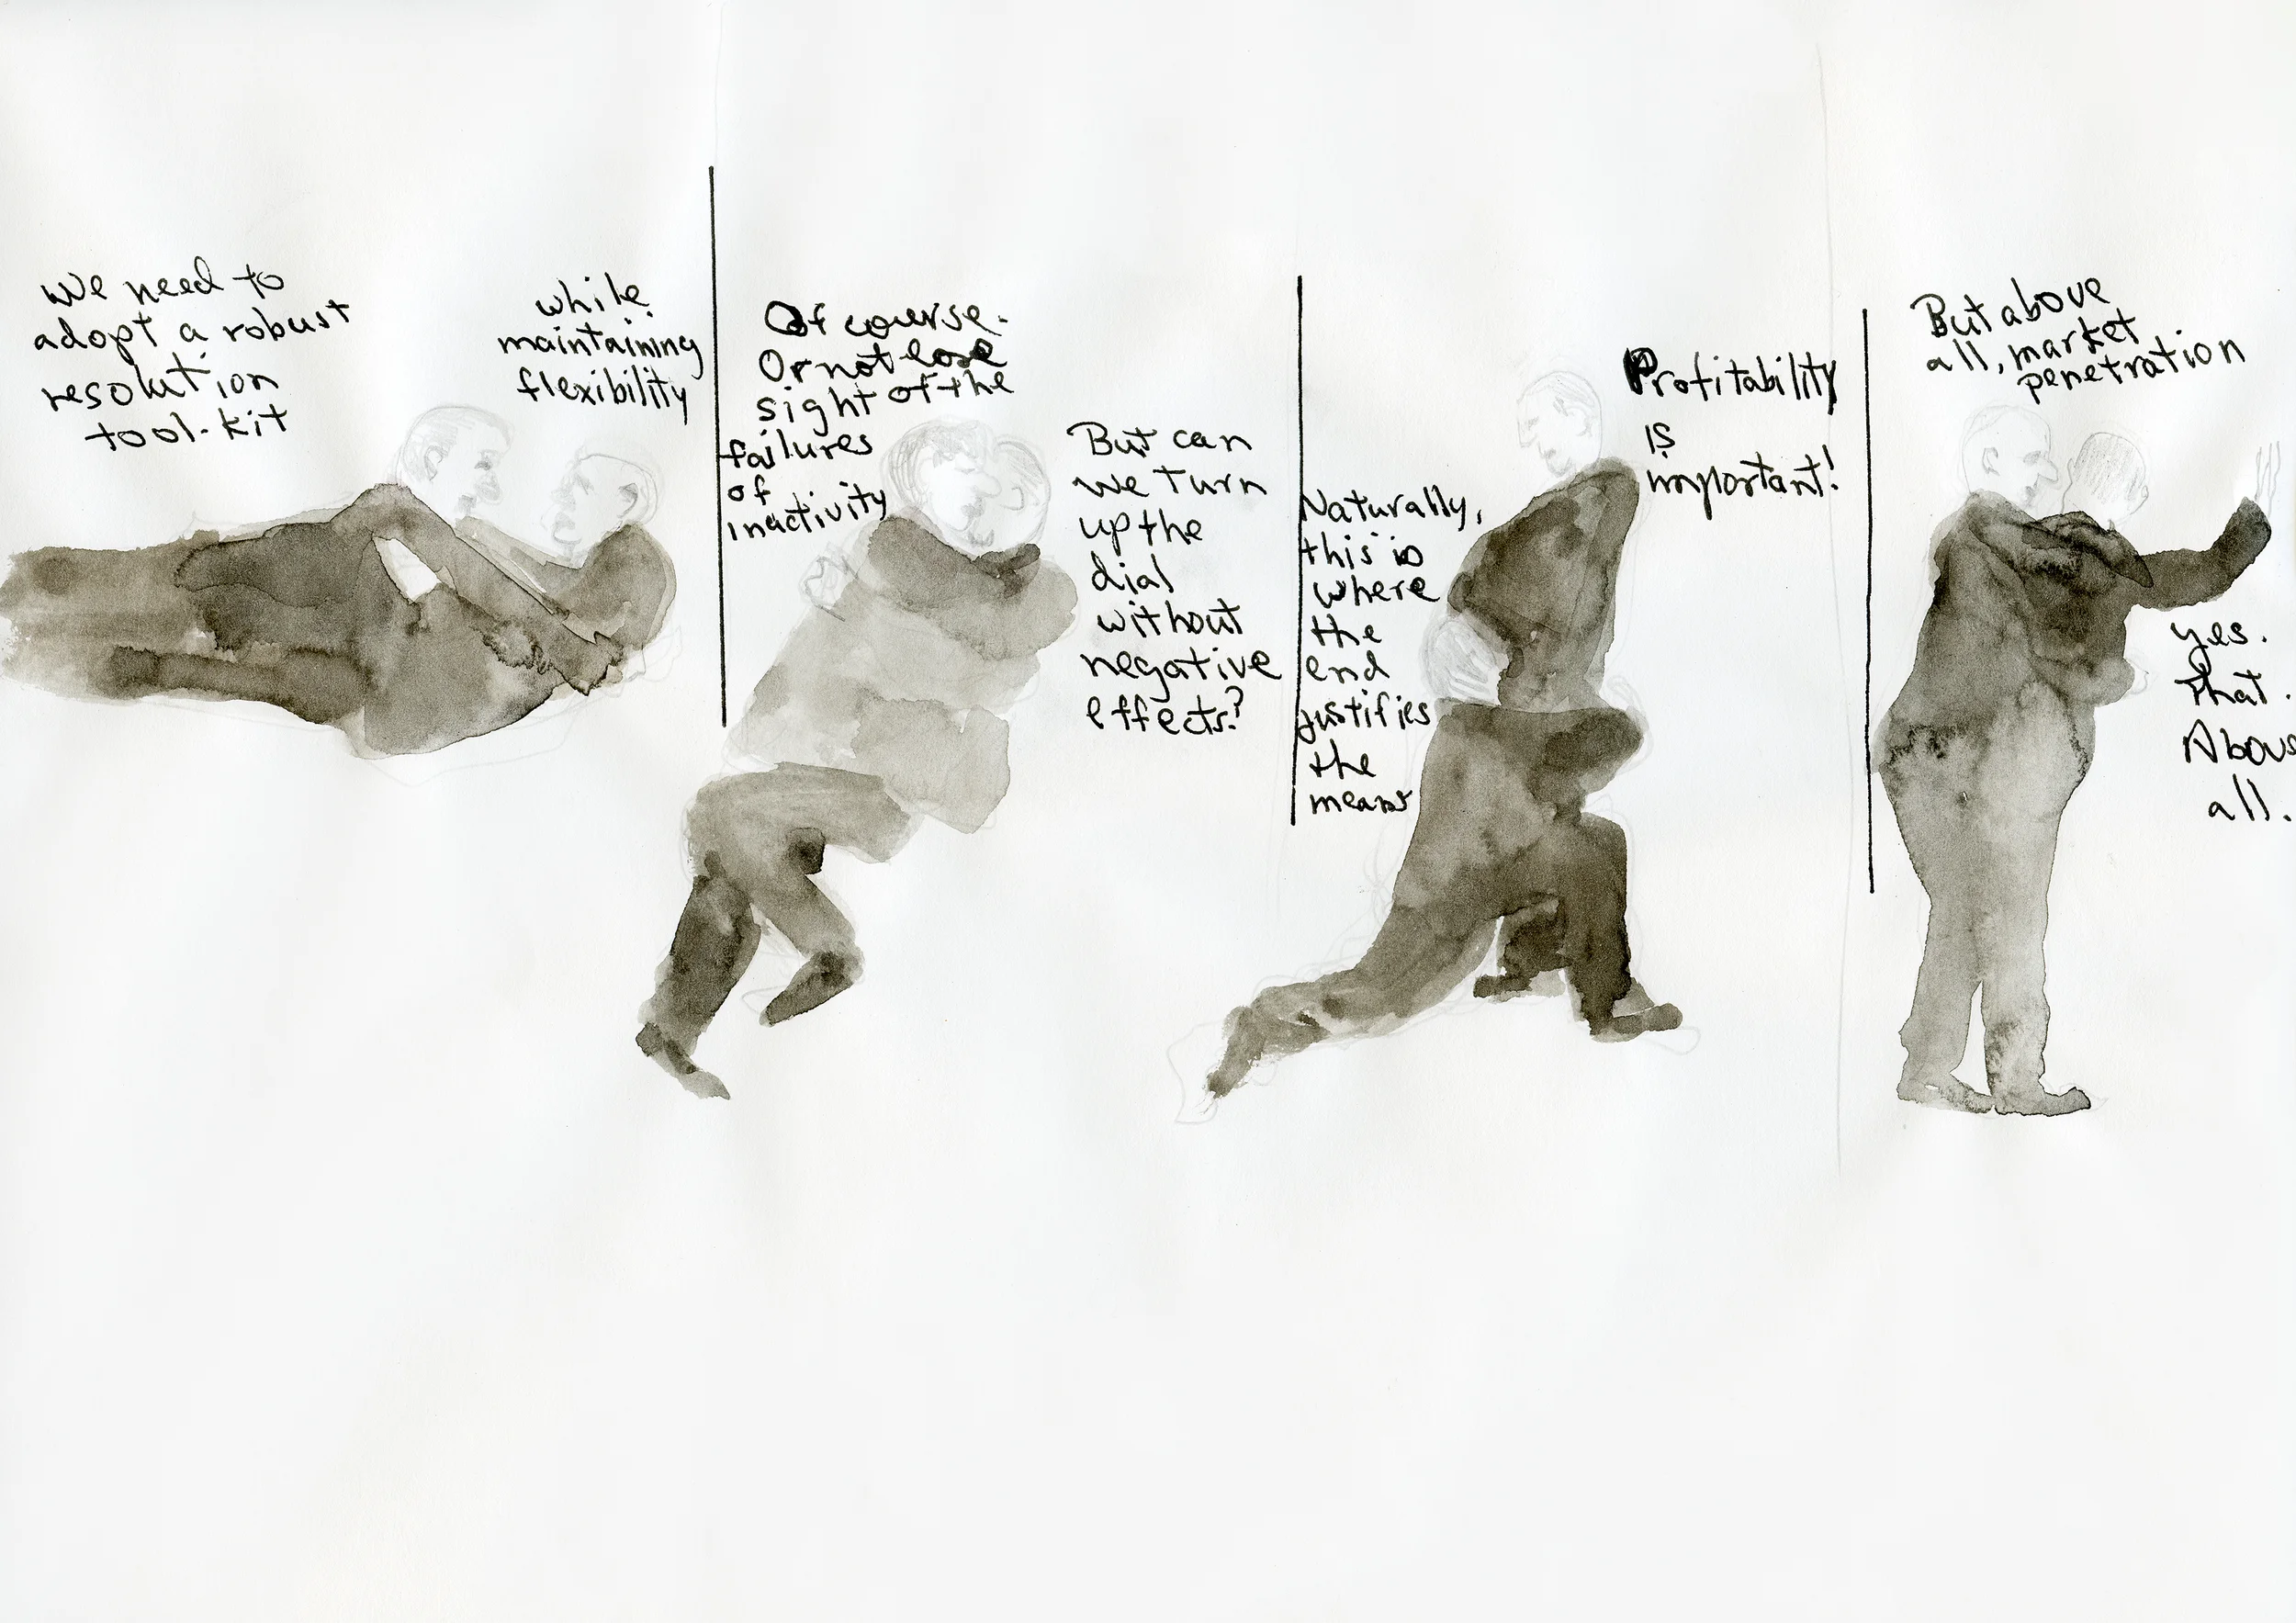 We need to
adopt a robust
resolution
tool-kit
while
maintaining
flexibility
Of course.
Or not lose
sight of the
failures
of
inactivity
But can
we turn
up the
dial
without
negative
effects?
Naturally,
this is
where
the
end
justifies
the
means
Profitability
is
important!
But above
all, market
penetration
yes.
That.
Above
all.